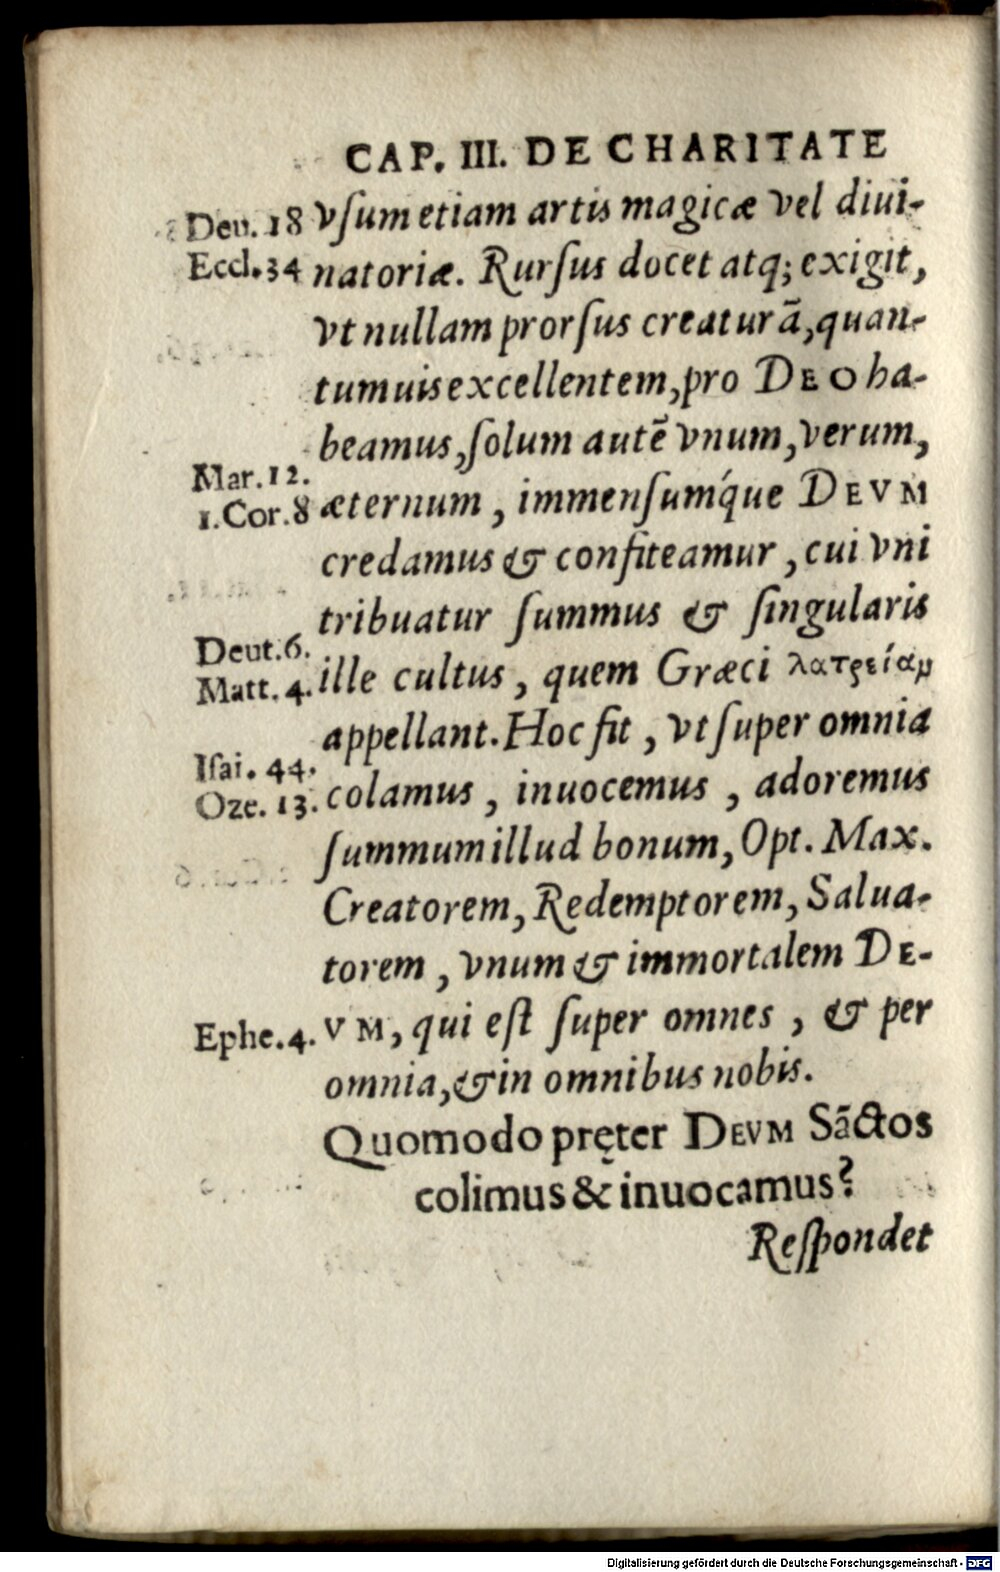 CAP. III. DE CHARITATE
Deu. 18 vſum etiam artis magicæ vel diui-
Eccl. 34 natoriæ. Rurſus docet atq; exigit,
vt nullam prorſus creaturā, quan-
tumuis excellentem, pro DEO ha-
beamus, ſolum autē vnum, verum,
Mar. 12.
1. Cor. 8 æternum, immenſumq́ue DEVM
credamus & confiteamur, cui vni
tribuatur ſummus & ſingularis
Deut. 6.
Matt. 4. ille cultus, quem Græci λατρείαμ
appellant. Hoc fit, vt ſuper omnia
Iſai. 44.
Oze. 13. colamus, inuocemus, adoremus
ſummum illud bonum, Opt. Max.
Creatorem, Redemptorem, Salua-
torem, vnum & immortalem DE-
Ephe. 4. VM, qui eſt ſuper omnes, & per
omnia, & in omnibus nobis.
Quomodo pręter DEVM Sāctos
colimus & inuocamus?
Reſpondet
Digitalisierung gefördert durch die Deutsche Forschungsgemeinschaft - DFG